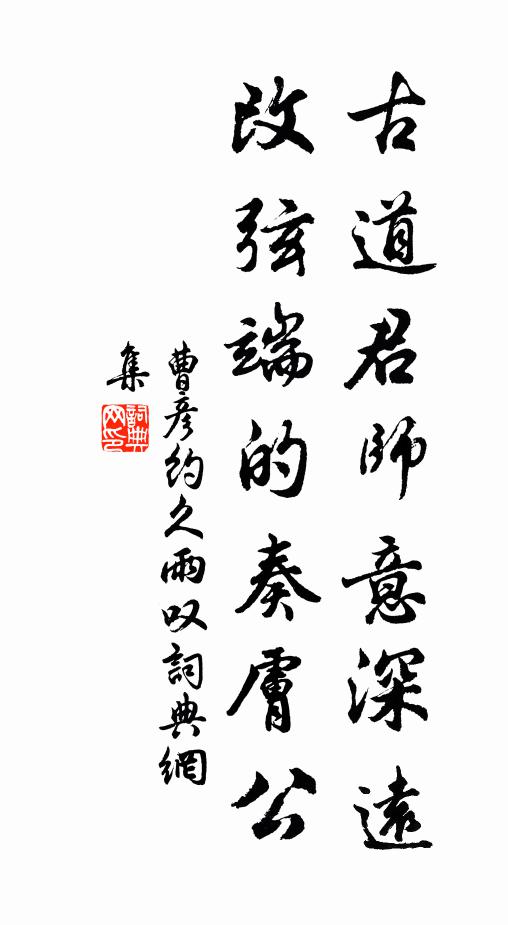 古道君師意深遠
改弦端的奏膚公
曹彦約久雨叹詞典網
集
詞典
网印